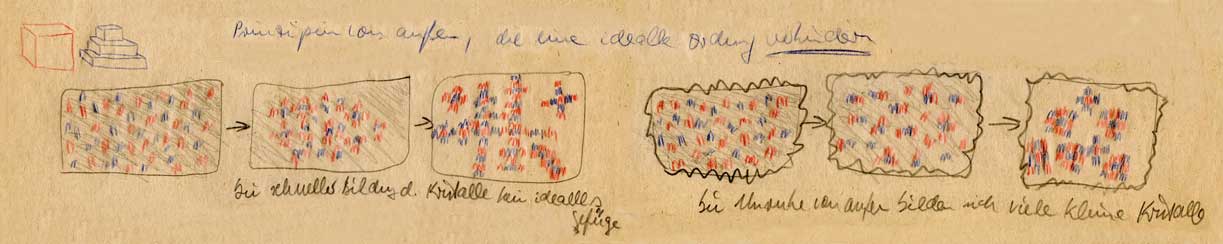 Prinzipien von außen, die eine idealle Ordnung verhindern
bei schneller Bildung d. Kristalle kein idealles
gefüge
bei Unruhe von außen bilden sich viele kleine Kristalle